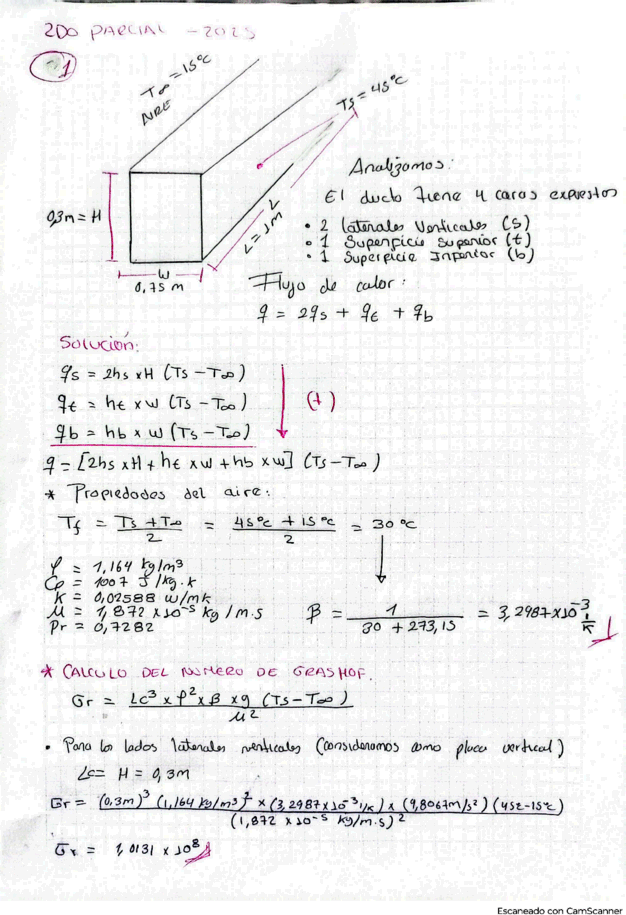 2DO PARCIAL - 2025
1
T∞ = 15°C
AIRE
Ts = 45°C
0,3m = H
W
0,75 m
L
L = 1m
Analizamos:
El ducto tiene 4 caras expuestos
• 2 laterales Verticales (s)
• 1 Superficie Superior (t)
• 1 Superficie Inferior (b)
Flujo de calor:
q = 2qs + qt + qb
Solución:
qs = 2hs x H (Ts - T∞)
qt = ht x w (Ts - T∞)
qb = hb x w (Ts - T∞)
(+)
q = [2hs x H + ht x w + hb x w] (Ts - T∞)
* Propiedades del aire:
Tf = (Ts + T∞)/2 = (45°C + 15°C)/2 = 30°C
ρ = 1,164 kg/m³
Cp = 1007 J/kg.k
K = 0,02588 w/mk
μ = 1,872 x10⁻⁵ kg/m.s
Pr = 0,7282
β = 1/(30 + 273,15) = 3,2987x10⁻³ 1/K
* CALCULO DEL NUMERO DE GRASHOF.
Gr = (Lc³ x ρ² x β x g (Ts - T∞))/μ²
• Para los lados laterales verticales (consideramos como placa vertical)
Lc = H = 0,3m
Gr = ((0,3m)³ (1,164 kg/m³)² x (3,2987x10⁻³ 1/K) x (9,8067m/s²) (45°C-15°C))/(1,872 x10⁻⁵ kg/m.s)²
Gr = 1,0131 x 10⁸
Escaneado con CamScanner